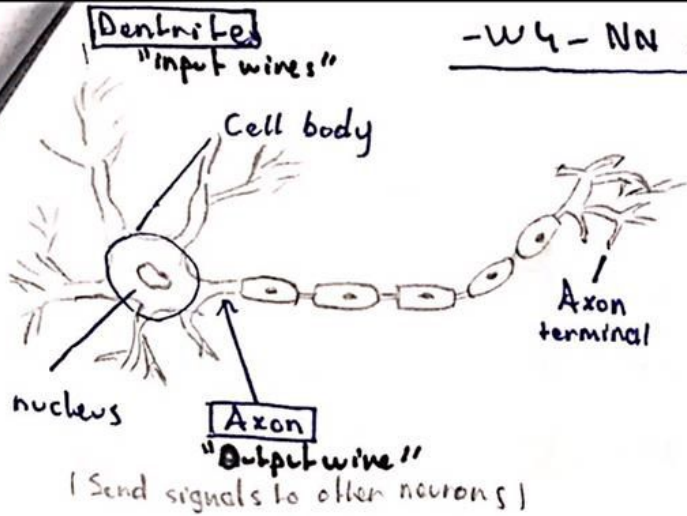 Dentrites
"input wires"
-W4-NN
Cell body
Axon
terminal
nucleus
Axon
"Output wire"
(Send signals to other neurons)